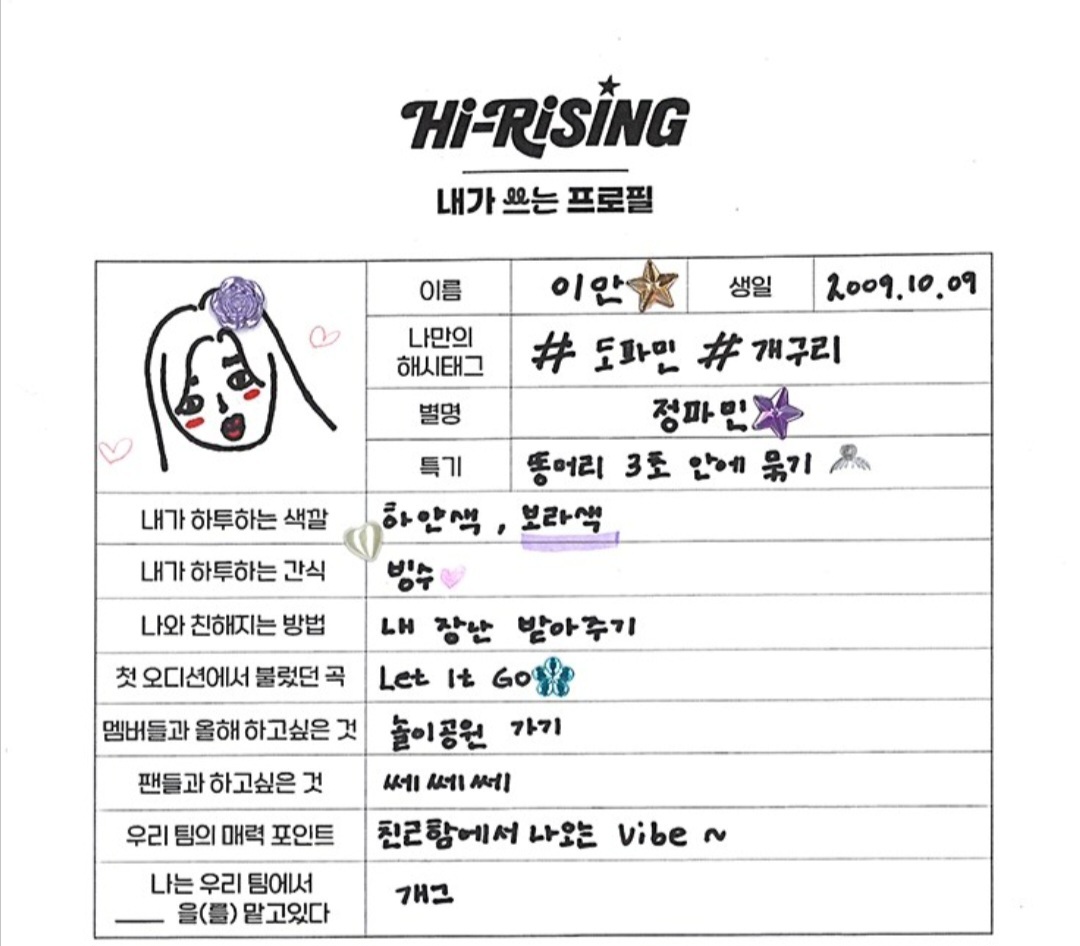 Hi-RiSiNG
내가 쓰는 프로필
이름 이안 생일 2009.10.09
나만의
해시태그
# 도파민 # 개구리
별명 정파민
특기 똥머리 3초 안에 묶기
내가 하투하는 색깔 하얀색, 보라색
내가 하투하는 간식 빙수
나와 친해지는 방법 내 장난 받아주기
첫 오디션에서 불렀던 곡 Let It Go
멤버들과 올해 하고싶은 것 놀이공원 가기
팬들과 하고싶은 것 쎄쎄쎄
우리 팀의 매력 포인트 친근함에서 나오는 Vibe ~
나는 우리 팀에서
____ 을(를) 맡고있다
개그